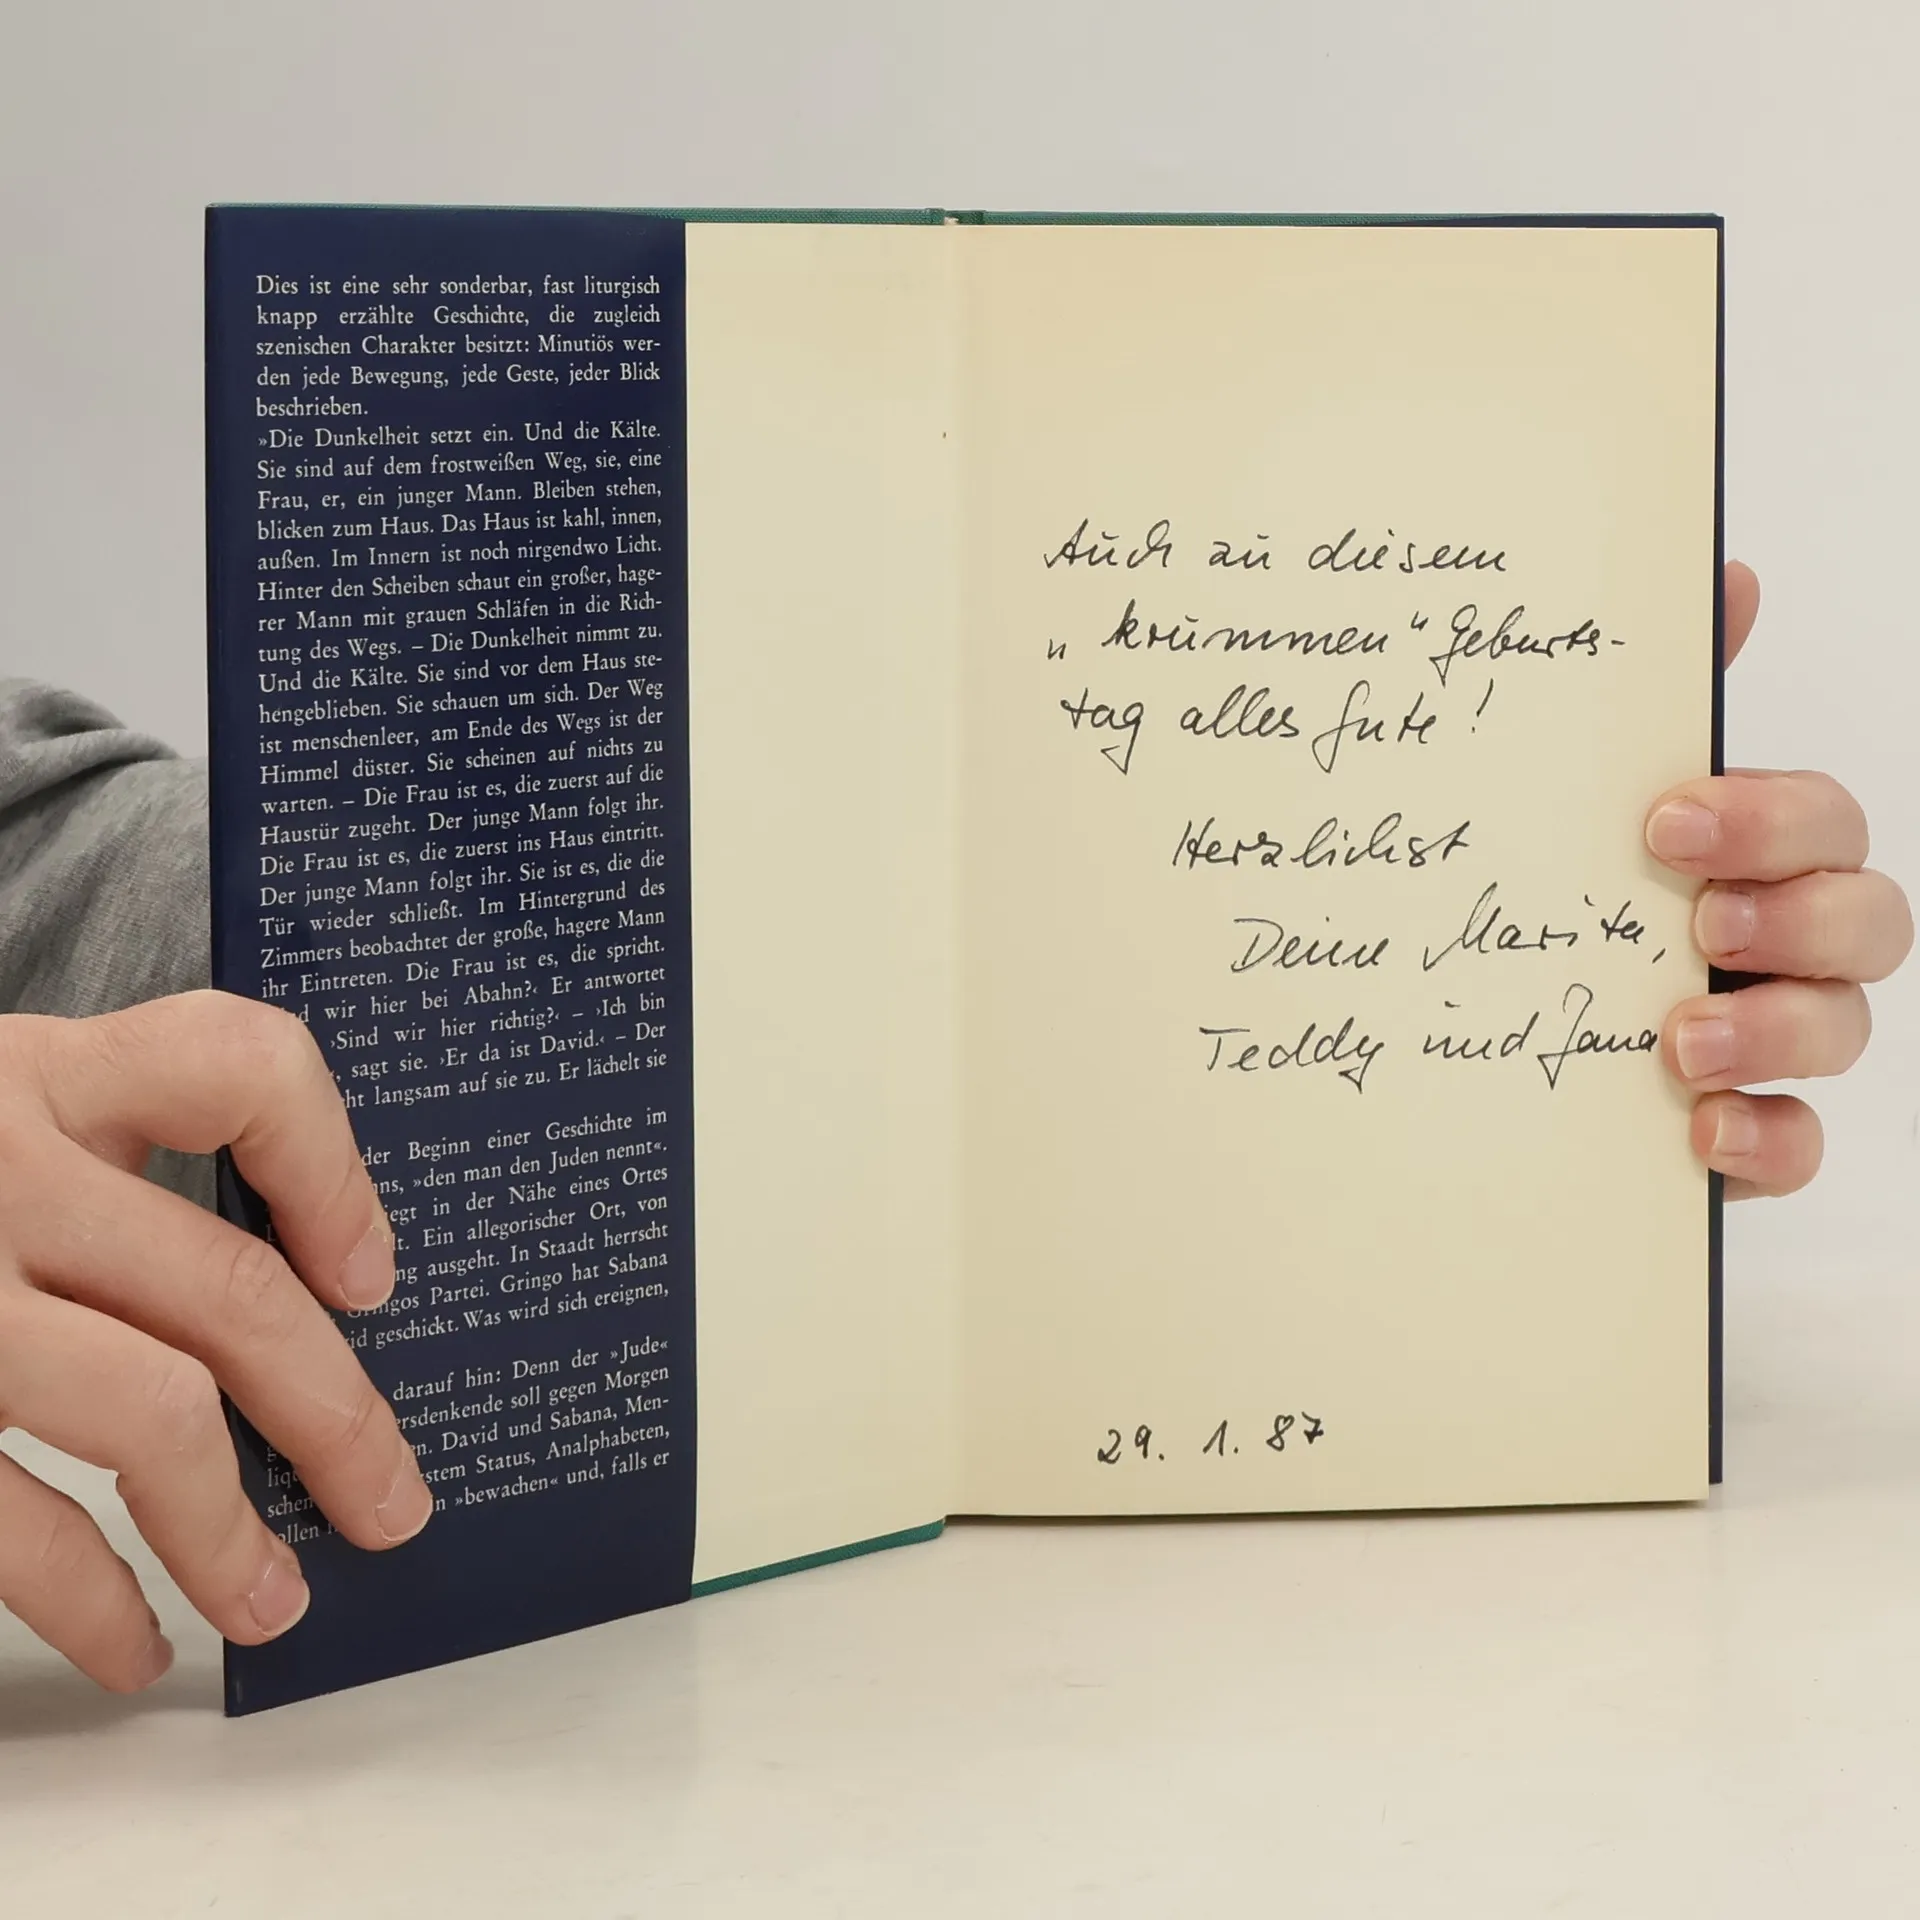 Dies ist eine sehr sonderbar, fast liturgisch
knapp erzählte Geschichte, die zugleich
szenischen Charakter besitzt: Minutiös wer-
den jede Bewegung, jede Geste, jeder Blick
beschrieben.
»Die Dunkelheit setzt ein. Und die Kälte.
Sie sind auf dem frostweißen Weg, sie, eine
Frau, er, ein junger Mann. Bleiben stehen,
blicken zum Haus. Das Haus ist kahl, innen,
außen. Im Innern ist noch nirgendwo Licht.
Hinter den Scheiben schaut ein großer, hage-
rer Mann mit grauen Schläfen in die Rich-
tung des Wegs. – Die Dunkelheit nimmt zu.
Und die Kälte. Sie sind vor dem Haus ste-
hengeblieben. Sie schauen um sich. Der Weg
ist menschenleer, am Ende des Wegs ist der
Himmel düster. Sie scheinen auf nichts zu
warten. – Die Frau ist es, die zuerst auf die
Haustür zugeht. Der junge Mann folgt ihr.
Die Frau ist es, die zuerst ins Haus eintritt.
Der junge Mann folgt ihr. Sie ist es, die die
Tür wieder schließt. Im Hintergrund des
Zimmers beobachtet der große, hagere Mann
ihr Eintreten. Die Frau ist es, die spricht.
wir hier bei Abahn?‹ Er antwortet
›Sind wir hier richtig?‹ – ›Ich bin
sagt sie. ›Er da ist David.‹ – Der
langsam auf sie zu. Er lächelt sie
der Beginn einer Geschichte im
»den man den Juden nennt«.
in der Nähe eines Ortes
Ein allegorischer Ort, von
ausgeht. In Staadt herrscht
Gringos Partei. Gringo hat Sabana
geschickt. Was wird sich ereignen,
darauf hin: Denn der »Jude«
soll gegen Morgen
David und Sabana, Men-
Status, Analphabeten,
»bewachen« und, falls er
Auch zu diesem
„krummen“ Geburts-
tag alles Gute!
Herzlichst
Deine Marita,
Teddy und Jana
29. 1. 87